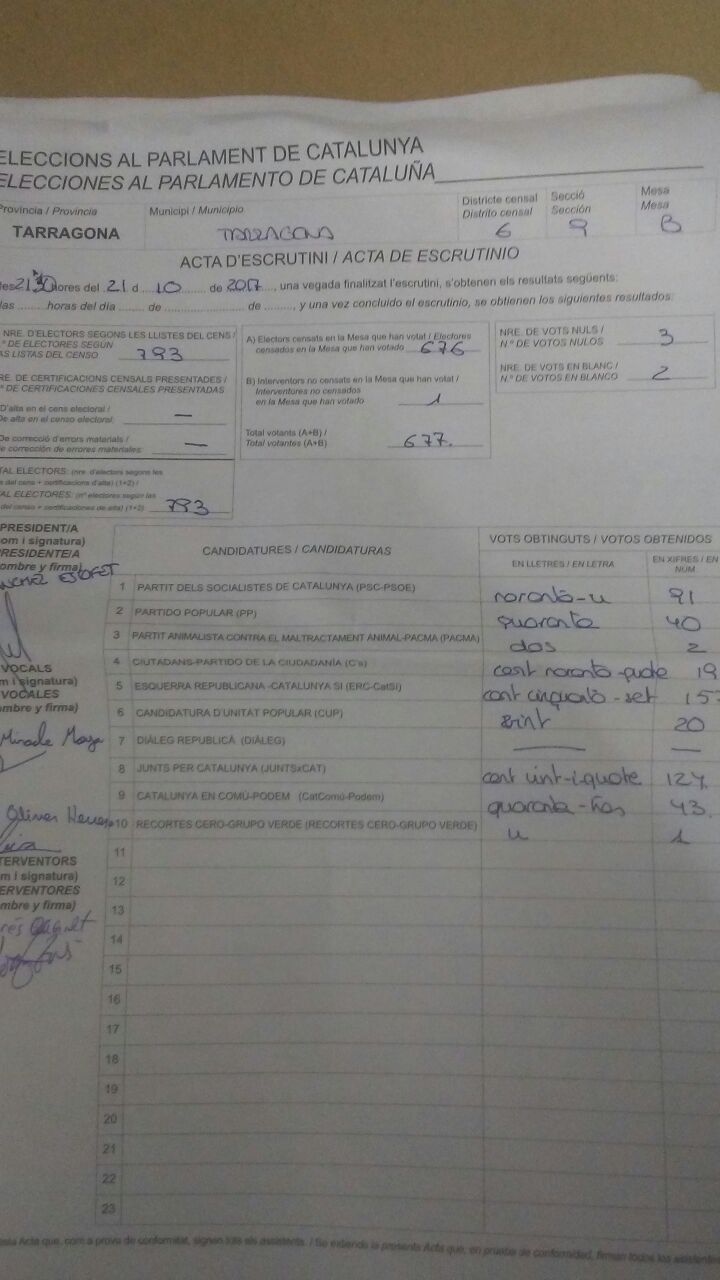 ELECCIONS AL PARLAMENT DE CATALUNYA
ELECCIONES AL PARLAMENTO DE CATALUÑA
Provincia / Provincia
TARRAGONA
Municipi / Municipio
TARRAGONA
Districte censal
Distrito censal
6
Secció
Sección
9
Mesa
Mesa
B
ACTA D'ESCRUTINI / ACTA DE ESCRUTINIO
les 21:30 hores del 21 d 10 de 2017, una vegada finalitzat l'escrutini, s'obtenen els resultats següents:
las ........ horas del día ........ de ........ de ........, y una vez concluido el escrutinio, se obtienen los siguientes resultados:
NRE. D'ELECTORS SEGONS LES LLISTES DEL CENS /
º DE ELECTORES SEGÚN
AS LISTAS DEL CENSO 793
RE. DE CERTIFICACIONS CENSALS PRESENTADES /
º DE CERTIFICACIONES CENSALES PRESENTADAS
D'alta en el cens electoral /
De alta en el censo electoral: —
De correcció d'errors materials /
e corrección de errores materiales: —
TAL ELECTORS: (nre. d'electors segons les
s del cens + certificacions d'alta) (1+2) /
AL ELECTORES: (nº electores según las
del censo + certificaciones de alta) (1+2) 793
A) Electors censats en la Mesa que han votat / Electores
censados en la Mesa que han votado 676
B) Interventors no censats en la Mesa que han votat /
Interventores no censados
en la Mesa que han votado 1
Total votants (A+B) /
Total votantes (A+B) 677.
NRE. DE VOTS NULS /
N.º DE VOTOS NULOS 3
NRE. DE VOTS EN BLANC /
N.º DE VOTOS EN BLANCO 2
PRESIDENT/A
om i signatura)
PRESIDENTE/A
ombre y firma)
VOCALS
m i signatura)
VOCALES
mbre y firma)
TERVENTORS
m i signatura)
ERVENTORES
mbre y firma)
CANDIDATURES / CANDIDATURAS
VOTS OBTINGUTS / VOTOS OBTENIDOS
EN LLETRES / EN LETRA
EN XIFRES / EN
NÚM.
1 PARTIT DELS SOCIALISTES DE CATALUNYA (PSC-PSOE) noranta-u 91
2 PARTIDO POPULAR (PP) quaranta 40
3 PARTIT ANIMALISTA CONTRA EL MALTRACTAMENT ANIMAL-PACMA (PACMA) dos 2
4 CIUTADANS-PARTIDO DE LA CIUDADANÍA (C's) cent noranta- 19
5 ESQUERRA REPUBLICANA -CATALUNYA SÍ (ERC-CatSí) cent cinquanta-set 15
6 CANDIDATURA D'UNITAT POPULAR (CUP) vint 20
7 DIÀLEG REPUBLICÀ (DIÀLEG) — —
8 JUNTS PER CATALUNYA (JUNTSxCAT) cent vint-i-quatre 124
9 CATALUNYA EN COMÚ-PODEM (CatComú-Podem) quaranta-tres 43.
10 RECORTES CERO-GRUPO VERDE (RECORTES CERO-GRUPO VERDE) u 1
11
12
13
14
15
16
17
18
19
20
21
22
23
esta Acta que, com a prova de conformitat, signen tots els assistents. / Se extiende la presente Acta que, en prueba de conformidad, firman todos los asistentes